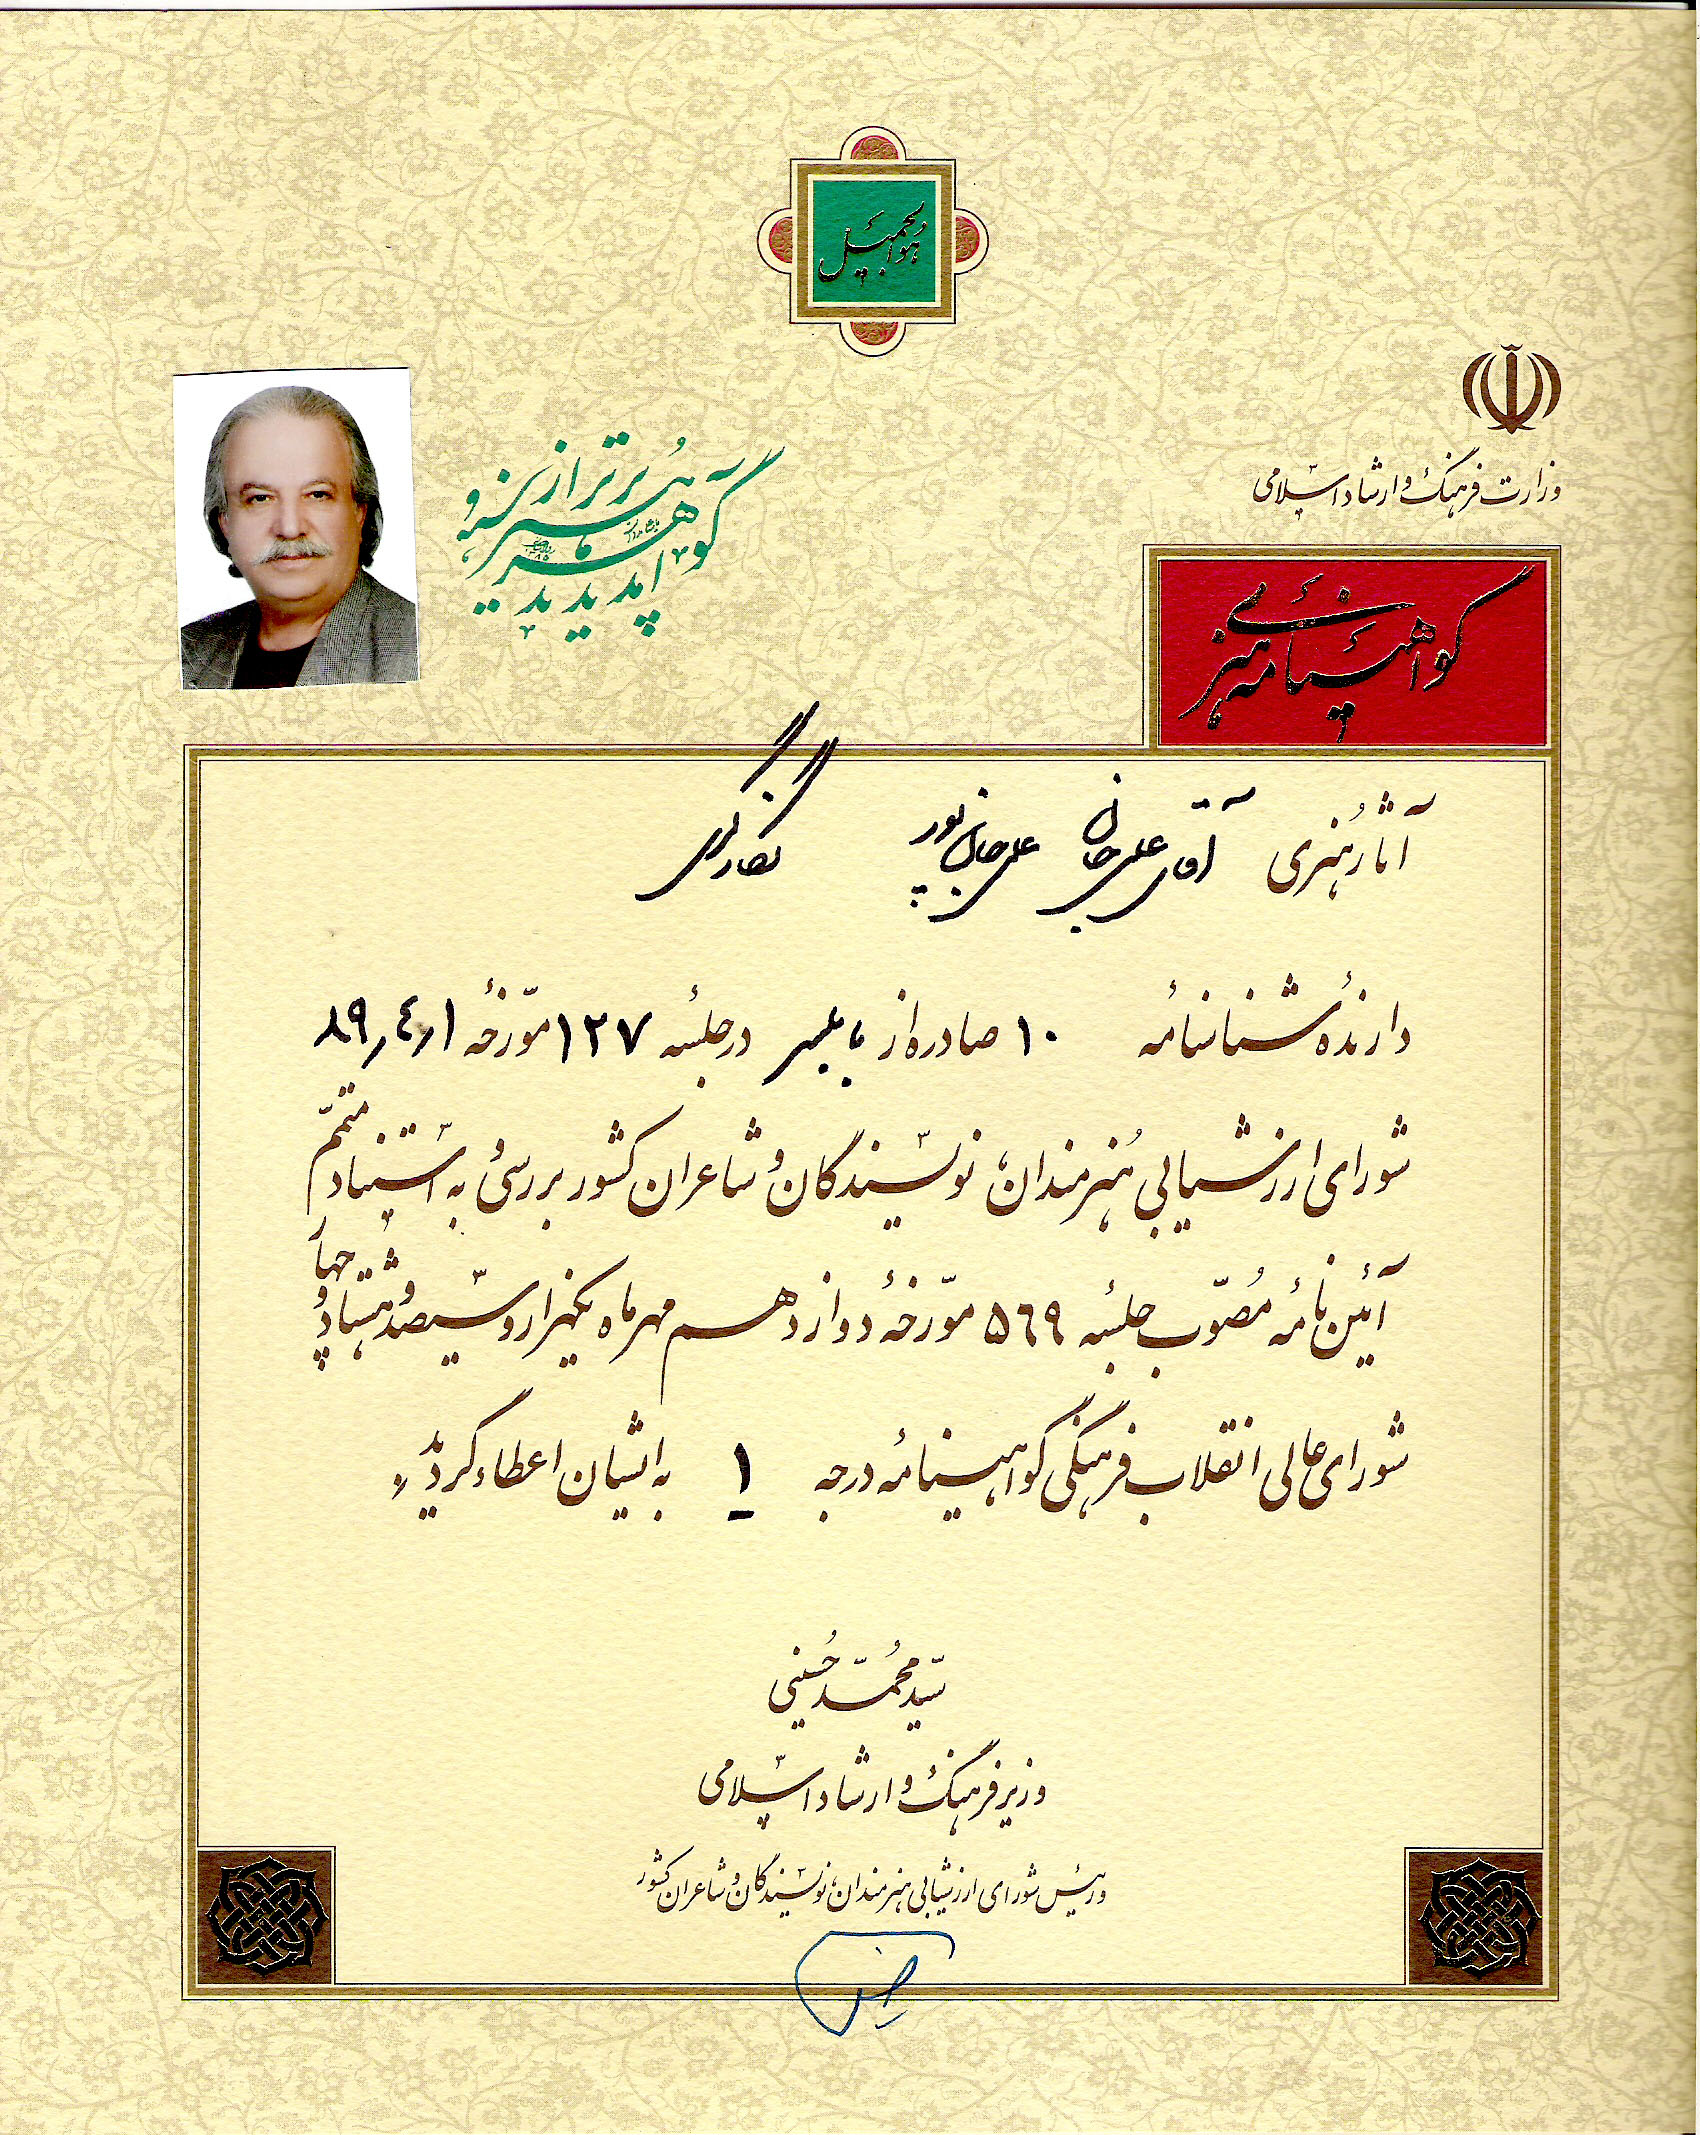 هوالجمیل
وزارت فرهنگ و ارشاد اسلامی
گواهینامه هنری
هنر برتر از گوهر آمد پدید
آثار هنری آقای علی‌جان علی‌جان‌پور نگارگری
دارندهٔ شناسنامهٔ ۱۰ صادره از بابلسر در جلسهٔ ۱۲۷ مورّخهٔ ۸۹٫٤٫۱
شورای ارزشیابی هُنرمندان، نویسندگان و شاعران کشور بررسی و به استناد متمّم
آئین‌نامهٔ مُصوّب جلسهٔ ۵٦۹ مورّخهٔ دوازدهم مهرماه یکهزار و سیصد و هشتاد و چهار
شورای عالی انقلاب فرهنگی گواهینامه درجه ۱ به ایشان اعطاء گردید
سیّد محُمّد حُسینی
وزیر فرهنگ و ارشاد اسلامی
و رئیس شورای ارزشیابی هنرمندان، نویسندگان و شاعران کشور